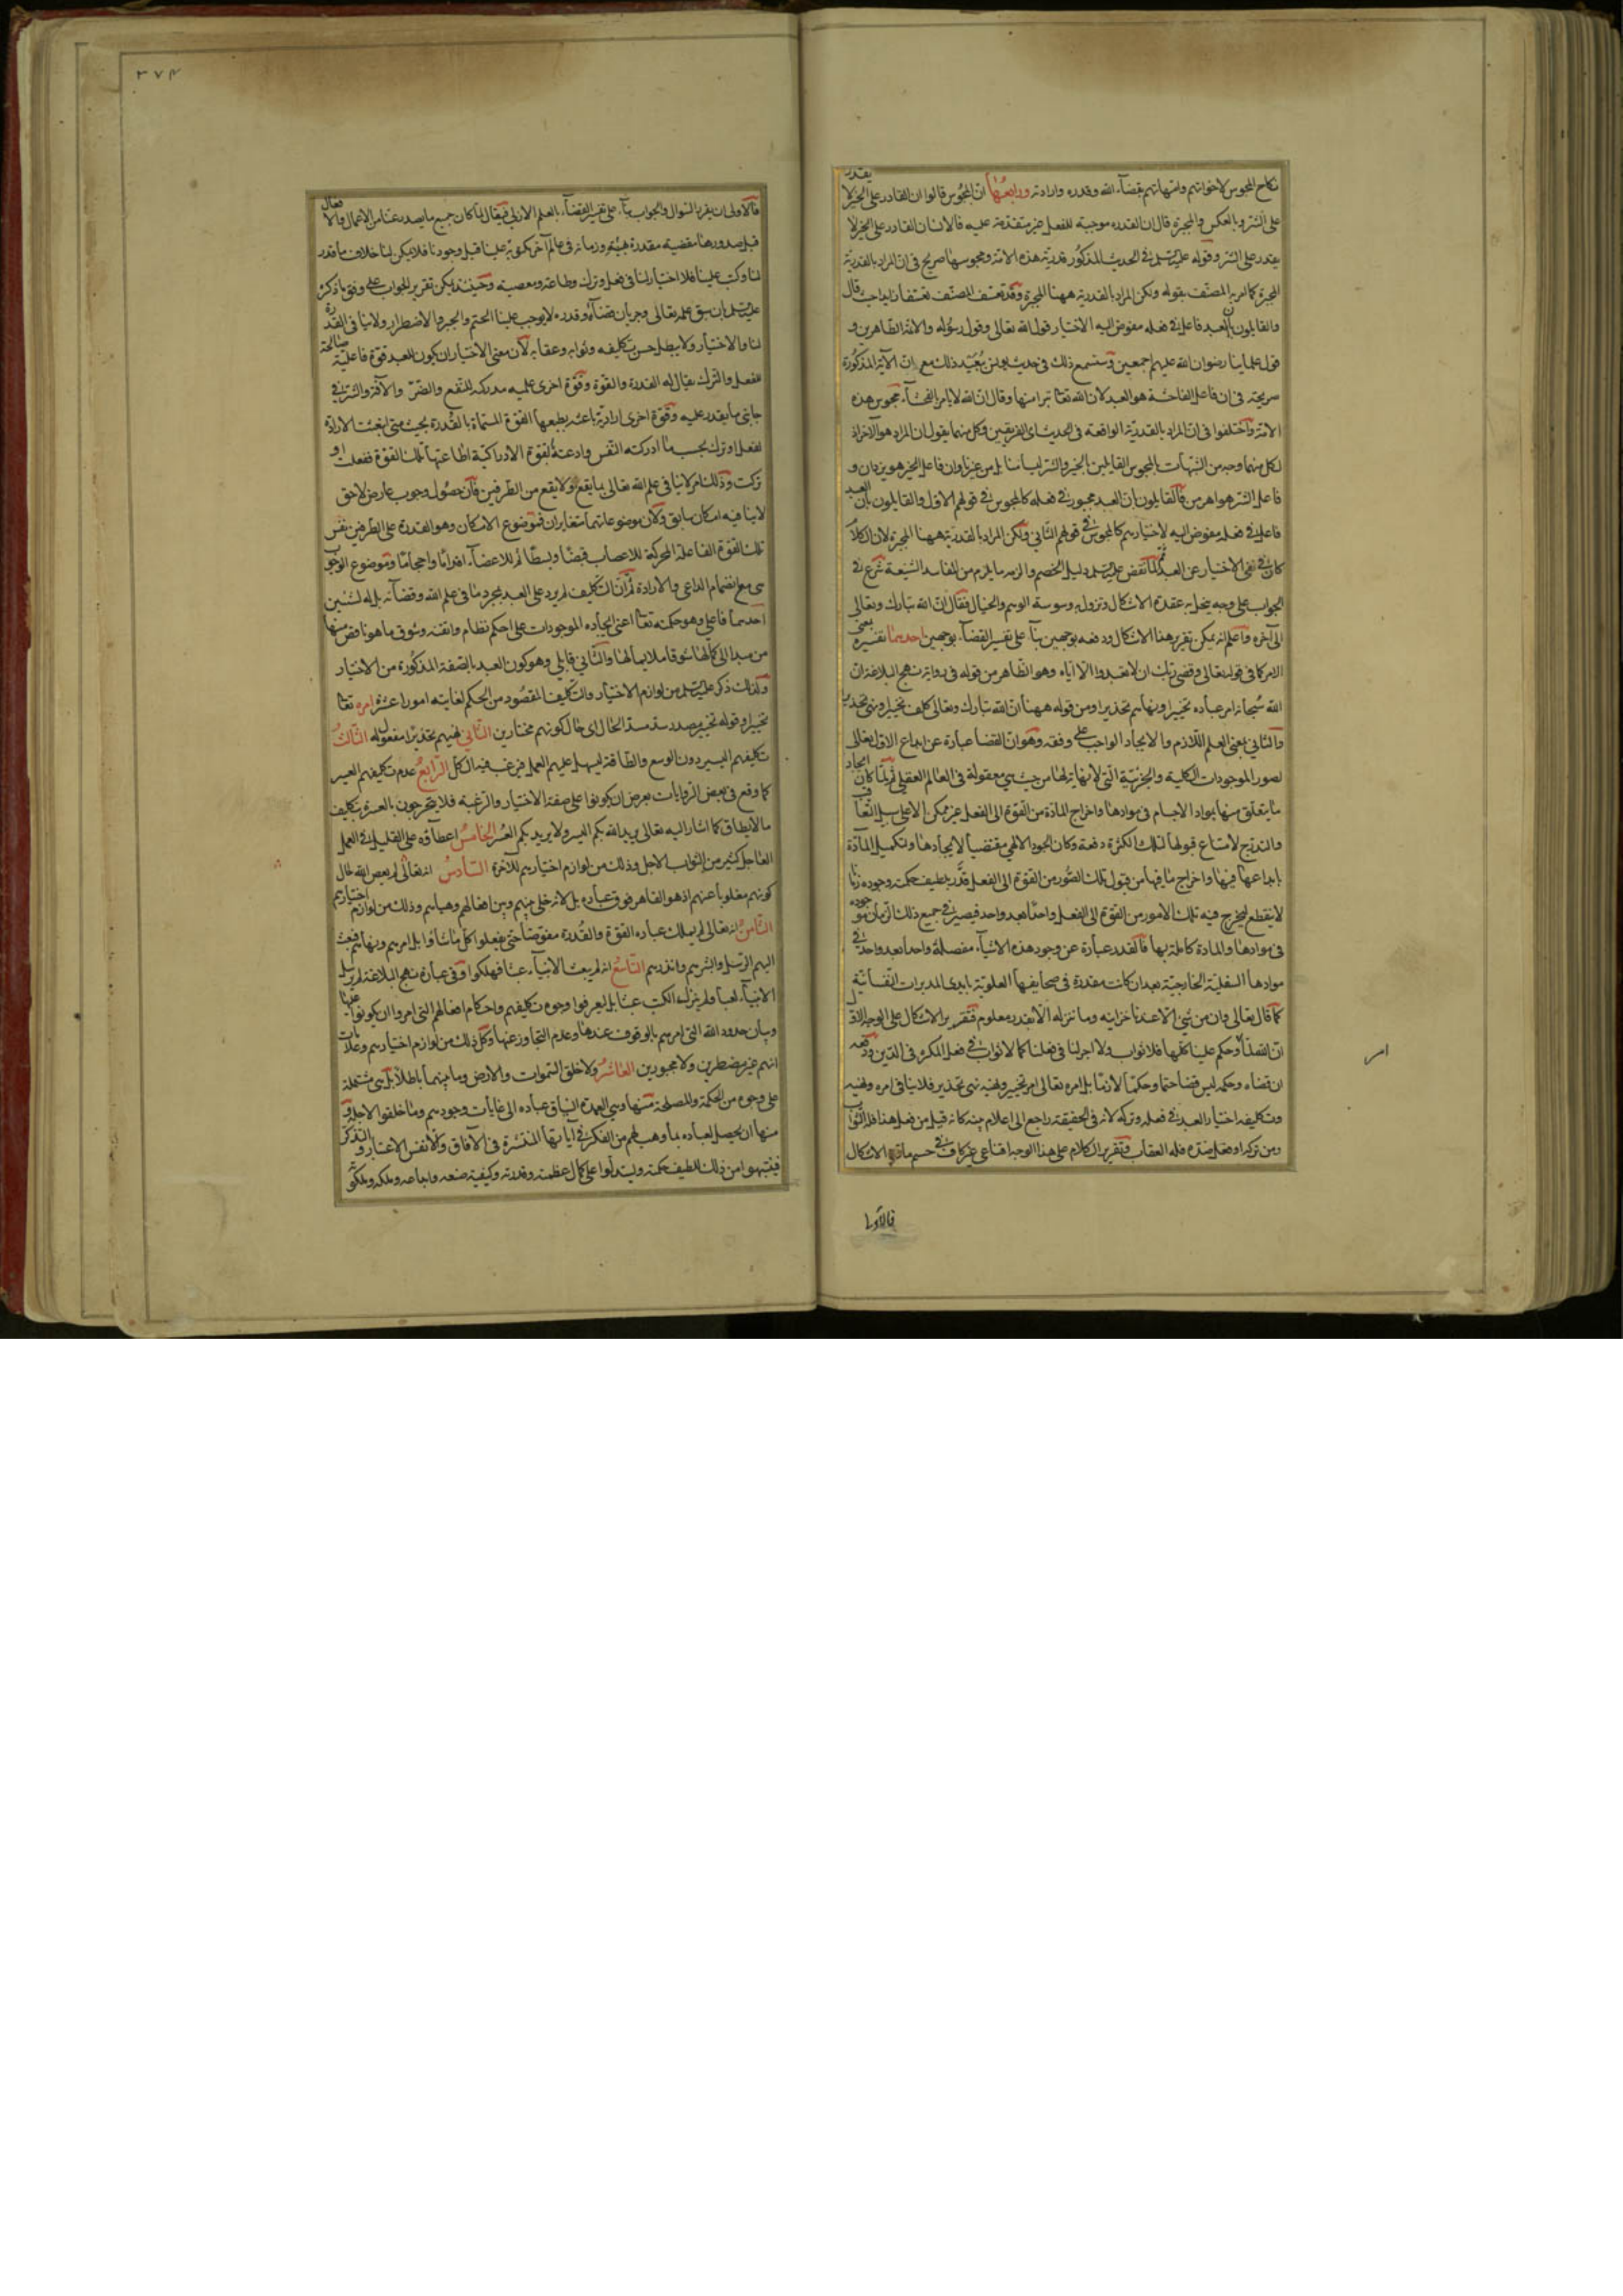 نكاح المجوس لاخواتهم وامهاتهم بقضآء الله وقدره وارادته ورابعها ان المجوس قالوا ان القادر على الخير لا يقدر
على الشر وبالعكس والمجبرة قالوا ان القدرة موجبة للفعل غير متقدمة عليه فالانسان القادر على الخير لا
يقدر على الشر وقوله عليه السلم في الحديث المذكور قدرية هذه الامة ومجوسها صريح في ان المراد بالقدرية
المجبرة كما المصنف بقوله ولكن المراد بالقدرية ههنا المجبرة وقد تعسف المصنف تعسفا حيث قال
والقايلون بان العبد فاعل في فعله مفوض اليه الاختيار قول الله تعالى وقول رسوله والائمة الطاهرين و
قول علماينا رضوان الله عليهم اجمعين وستسمع ذلك في حديث يونس ذلك مع ان الآية المذكورة
صريحة في ان فاعل الفاحشة هو العبد لان الله تعا تبرا منها وقال ان الله لا يامر بالفحشآء مجوس هذه
الامة واختلفوا في ان المراد بالقدرية الواقعة في الحديث اى الفريقين وكل منهما يقول ان المراد هو الآخر اذ
لكل منهما وجه من الشبهات بالمجوس القايلين بالخير والشر ليسا منا بل من غيرنا وان فاعل الخير هو يزدان و
فاعل الشر هو اهرمن فالقايلون بان العبد مجبور في فعله كالمجوس في قولهم الاول والقايلون بان العبد
فاعل في فعله مفوض اليه لاختيارهم كالمجوس في قولهم الثاني ولكن المراد بالقدرية ههنا المجبرة لان الكلام
كان في نفي الاختيار عن العبد ثم لما نقض عليه السلم دليل الخصم والزمه ما يلزم من المفاسد الشنيعة شرع في
الجواب على وجه ينحل به عقدة الاشكال وتزول به وسوسة الوهم والخيال فقال ان الله تبارك وتعالى
الى آخره واعلم انه يمكن تقرير هذا الاشكال ودفعه بوجهين بنآء على تفسير القضآء بوجهين احدهما تفسيره بمعنى
الامر كما في قوله تعالى وقضى ربك ان لا تعبدوا الا اياه وهو الظاهر من قوله في رواية نهج البلاغة ان
الله سبحانه امر عباده تخييرا ونهاهم تحذيرا ومن قوله ههنا ان الله تبارك وتعالى كلف تخييرا ونهى تحذيرا
والثاني بمعنى العلم اللازم والايجاد الواجب على وفقه وهو ان القضا عبارة عن ابداع الاول تعالى
لصور الموجودات الكلية والجزئية التي لا نهاية لها من حيث هي معقولة في العالم العقلي ثم لما كان ايجاد
ما يتعلق منها بمواد الاجسام في موادها واخراج المادة من القوة الى الفعل غير ممكن الا على سبيل التعاقب
والتدريج لامتناع قبولها لتلك الكثرة دفعة وكان الجود الالهي مقتضيا لايجادها ولتكميل المادة
بابداعها فيها واخراج ما فيها من قبول تلك الصور من القوة الى الفعل قدر بلطيف حكمته وجوده زمانا
لا ينقطع ليخرج فيه تلك الامور من القوة الى الفعل واحدا بعد واحد فيصير في جميع ذلك الزمان موجودة
في موادها والمادة كاملة بها فالقدر عبارة عن وجود هذه الاشيآء مفصلة واحدا بعد واحد في
موادها السفلية الخارجية بعد ان كانت مقدرة في صحايفها العلوية بايدي المدبرات النفسانية
كما قال تعالى وان من شيئ الا عندنا خزاينه وما ننزله الا بقدر معلوم فتقرير الاشكال على الوجه الاول
ان الله قضا وحكم علينا كلها فلا ثواب ولا اجر لنا في فعلنا كما لا ثواب في فعل المكره في الدين ودفعه
ان قضاءه وحكمه ليس قضا حتما وحكما لازما بل امره تعالى امر تخيير ونهيه نهي تحذير فلا ينافي امره ونهيه
وتكليفه اختيار العبد في فعله وتركه لانه في الحقيقة راجع الى اعلام منه كانه قيل من فعل هذا فله الثواب
ومن تركه او فعل ضده فله العقاب وتقرير الكلام على هذا الوجه اقناعي غير كاف في حسم مادة الاشكال
فالاولى
امر
٣٧٤
فالاولى ان يقرر السوال والجواب بنآء على تفسير القضآء بالعلم الازلي فيقال لما كان جميع ما يصدر عنا من الاعمال والافعال
قبل صدورها مقضية مقدرة بهيئته وزمانه في عالم آخر مكتوبة علينا قبل وجودنا فلا يمكن لنا خلاف ما قدر
لنا وكتب علينا فلا اختيار لنا في فعل وترك وطاعة ومعصية وحينئذ يمكن تقرير الجواب على وفق ما ذكره
عليه السلم بان سبق علمه تعالى وجريان قضآئه وقدره لا يوجب علينا الحتم والجبر والاضطرار ولا ينافي القدرة
لنا والاختيار ولا يبطل حسن تكليفه وثوابه وعقابه لان معنى الاختيار ان يكون للعبد قوة فاعلية صالحة
للفعل والترك يقال له القدرة والقوة وقوة اخرى علمية مدركة للنفع والضر والآفة والشر في
جانبي ما يقدر عليه وقوة اخرى ارادية باعثة يطيعها القوة المسماة بالقدرة بحيث متى انبعثت الارادة
لفعل او ترك بحسب ما ادركته النفس وادعته بقوة الادراكية اطاعتها تلك القوة ففعلت او
تركت وذلك امر لا ينافي علم الله تعالى بما يقع ولا يقع من الطرفين فان حصول وجوب عارض لاحق
لا ينافيه امكان سابق ولان موضوعاتهما متغايران فموضوع الامكان وهو القدرة على الطرفين نفس
تلك القوة الفاعلة المحركة للاعصاب قبضا وبسطا ثم للاعضآء اقداما واحجاما وموضوع الوجوب
هي مع انضمام الداعي والارادة ثم ان التكليف لم يرد على العبد بمجرد ما في علم الله وقضآئه بل له لشيئين
احدهما فاعلي وهو حكمته تعا اعني ايجاده الموجودات على احكم نظام واتقنه وسوق ما هو ناقص منها
من مبدا الى كمالها سوقا ملايما لها والثاني قابلي وهو كون العبد بالصفة المذكورة من الاختيار
ولذلك ذكر عليه السلم من لوازم الاختيار والتكليف المقصود من الحكيم لغايته امورا عشرة امره تعا
تخييرا وقوله تخيير مصدر سد مسد الحال اى حال كونهم مختارين الثاني نهيهم تحذيرا مفعول له الثالث
تكليفهم اليسير دون الوسع والطاقة ليسهل عليهم العمل فيرغب فيه الكل الرابع عدم تكليفهم العسير
كما وقع في بعض الروايات بعرض ان يكونوا على صفة الاختيار والرغبة فلا يخرجون بالعسرة بتكليف
ما لا يطاق كما اشار اليه تعالى يريد الله بكم اليسر ولا يريد بكم العسر الخامس اعطاؤه على القليل في العمل
العاجل كثير من الثواب الاجل وذلك من لوازم اختيارهم للآخرة السادس انه تعالى لم يعص الله لحال
كونهم مغلوبا عنهم اذ هو القاهر فوق عباده بل لانه خلى بينهم وبين افعالهم وهداهم وذلك من لوازم اختيارهم
الثامن انه تعالى لم يملك عباده القوة والقدرة مفوضا حتى يفعلوا كل ما شاؤا بل امرهم ونهاهم فبعث
اليهم الرسل وبشرهم وانذرهم التاسع انه لم يبعث الانبيآء عبثا فهلكوا وفي عبارة نهج البلاغة لم يرسل
الانبيآء لعبا ولم ينزل الكتب عبثا بل ليعرفوا وجوه تكليفهم واحكام افعالهم التي امروا ان يكونوا عليها
وبيان حدود الله التي امرهم بالوقوف عندها وعدم التجاوز عنها وكل ذلك من لوازم اختيارهم وعلامات
انهم غير مضطرين ولا مجبورين العاشر ولا خلق السموات والارض وما بينهما باطلا بل هي مشتملة
على وجوه من الحكمة والمصلحة منها وهي العمدة انسياق عباده الى غايات وجودهم وما خلقوا لاجله و
منها ان يحصل لعباده بما وهب لهم من الفكر في آياتها المنتشرة في الآفاق والانفس الاعتبار والتذكر
فيتنبهوا من ذلك للطيف حكمته ويستدلوا على كمال عظمته وقدرته وكيفية صنعه وابداعه وملكه وملكوته